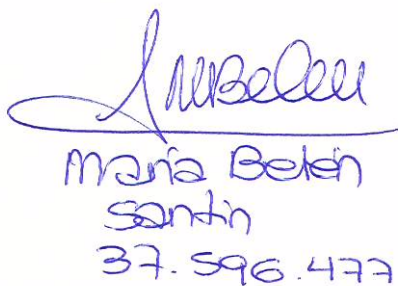 MBelen
María Belén
Santin
37.596.477